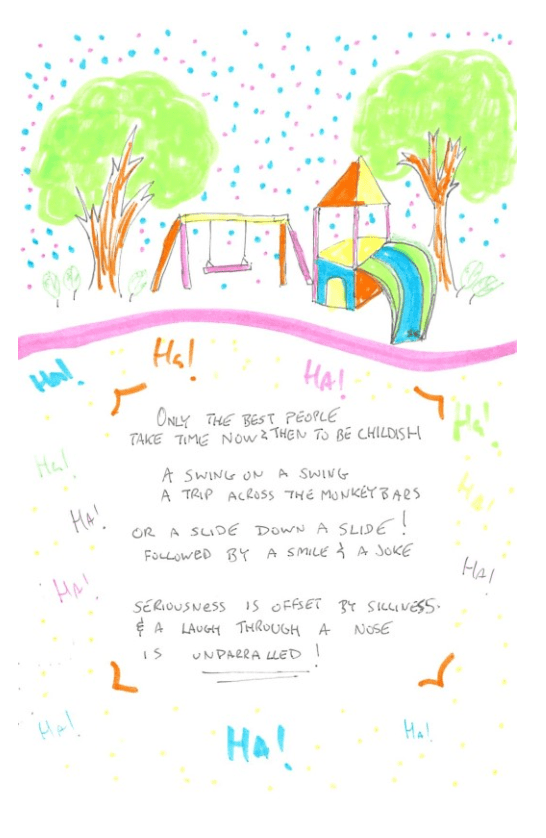 Ha! Ha! HA!
Ha!
ONLY THE BEST PEOPLE
TAKE TIME NOW & THEN TO BE CHILDISH
Ha!
A SWING ON A SWING
A TRIP ACROSS THE MONKEYBARS
Ha!
HA!
OR A SLIDE DOWN A SLIDE!
FOLLOWED BY A SMILE & A JOKE
HA!
HA!
SERIOUSNESS IS OFFSET BY SILLINESS.
& A LAUGH THROUGH A NOSE
IS UNPARRALLED!
HA!
Ha!
Ha!